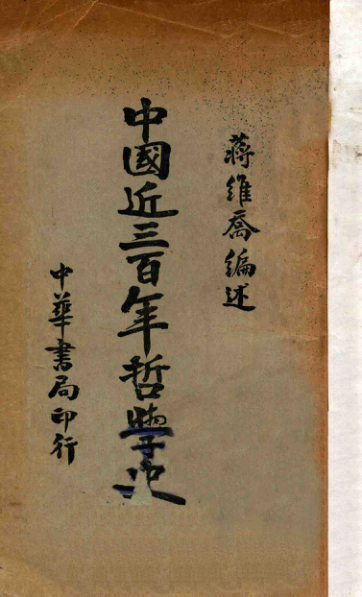 蔣維喬編述
中國近三百年哲學史
中華書局印行